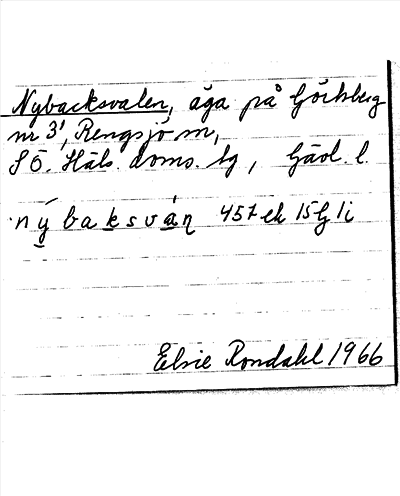 Nybacksvalen, äga på Görtsberg
nr 3¹, Rengsjö sn,
SÖ. Häls. doms. tg, Gävl. l.
nýbaksván 457 ek 15 G 1i
Elsie Rondahl 1966